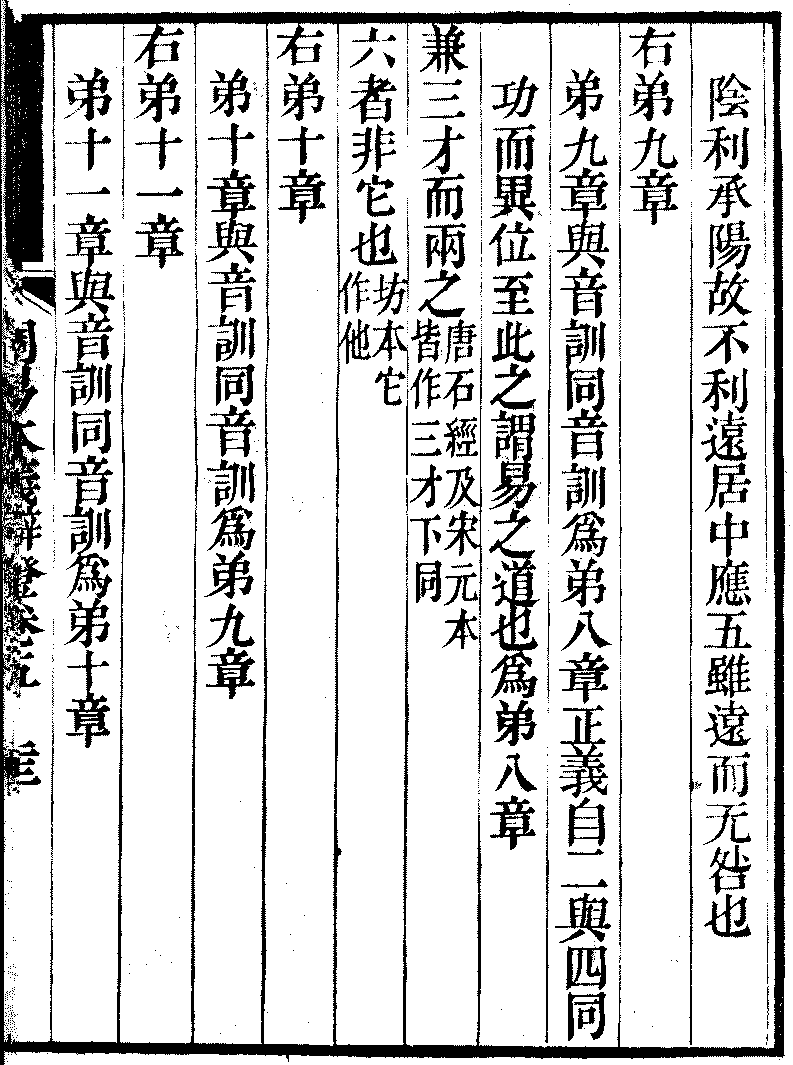 陰利承陽故不利遠居中應五雖遠而无咎也
右弟九章
弟九章與音訓同音訓爲弟八章正義自二與四同
功而異位至此之謂易之道也爲弟八章
兼三才而兩之唐石經及宋元本皆作三才下同
六者非它也坊本它作他
右弟十章
弟十章與音訓同音訓爲弟九章
右弟十一章
弟十一章與音訓同音訓爲弟十章
周易本義辯證卷五